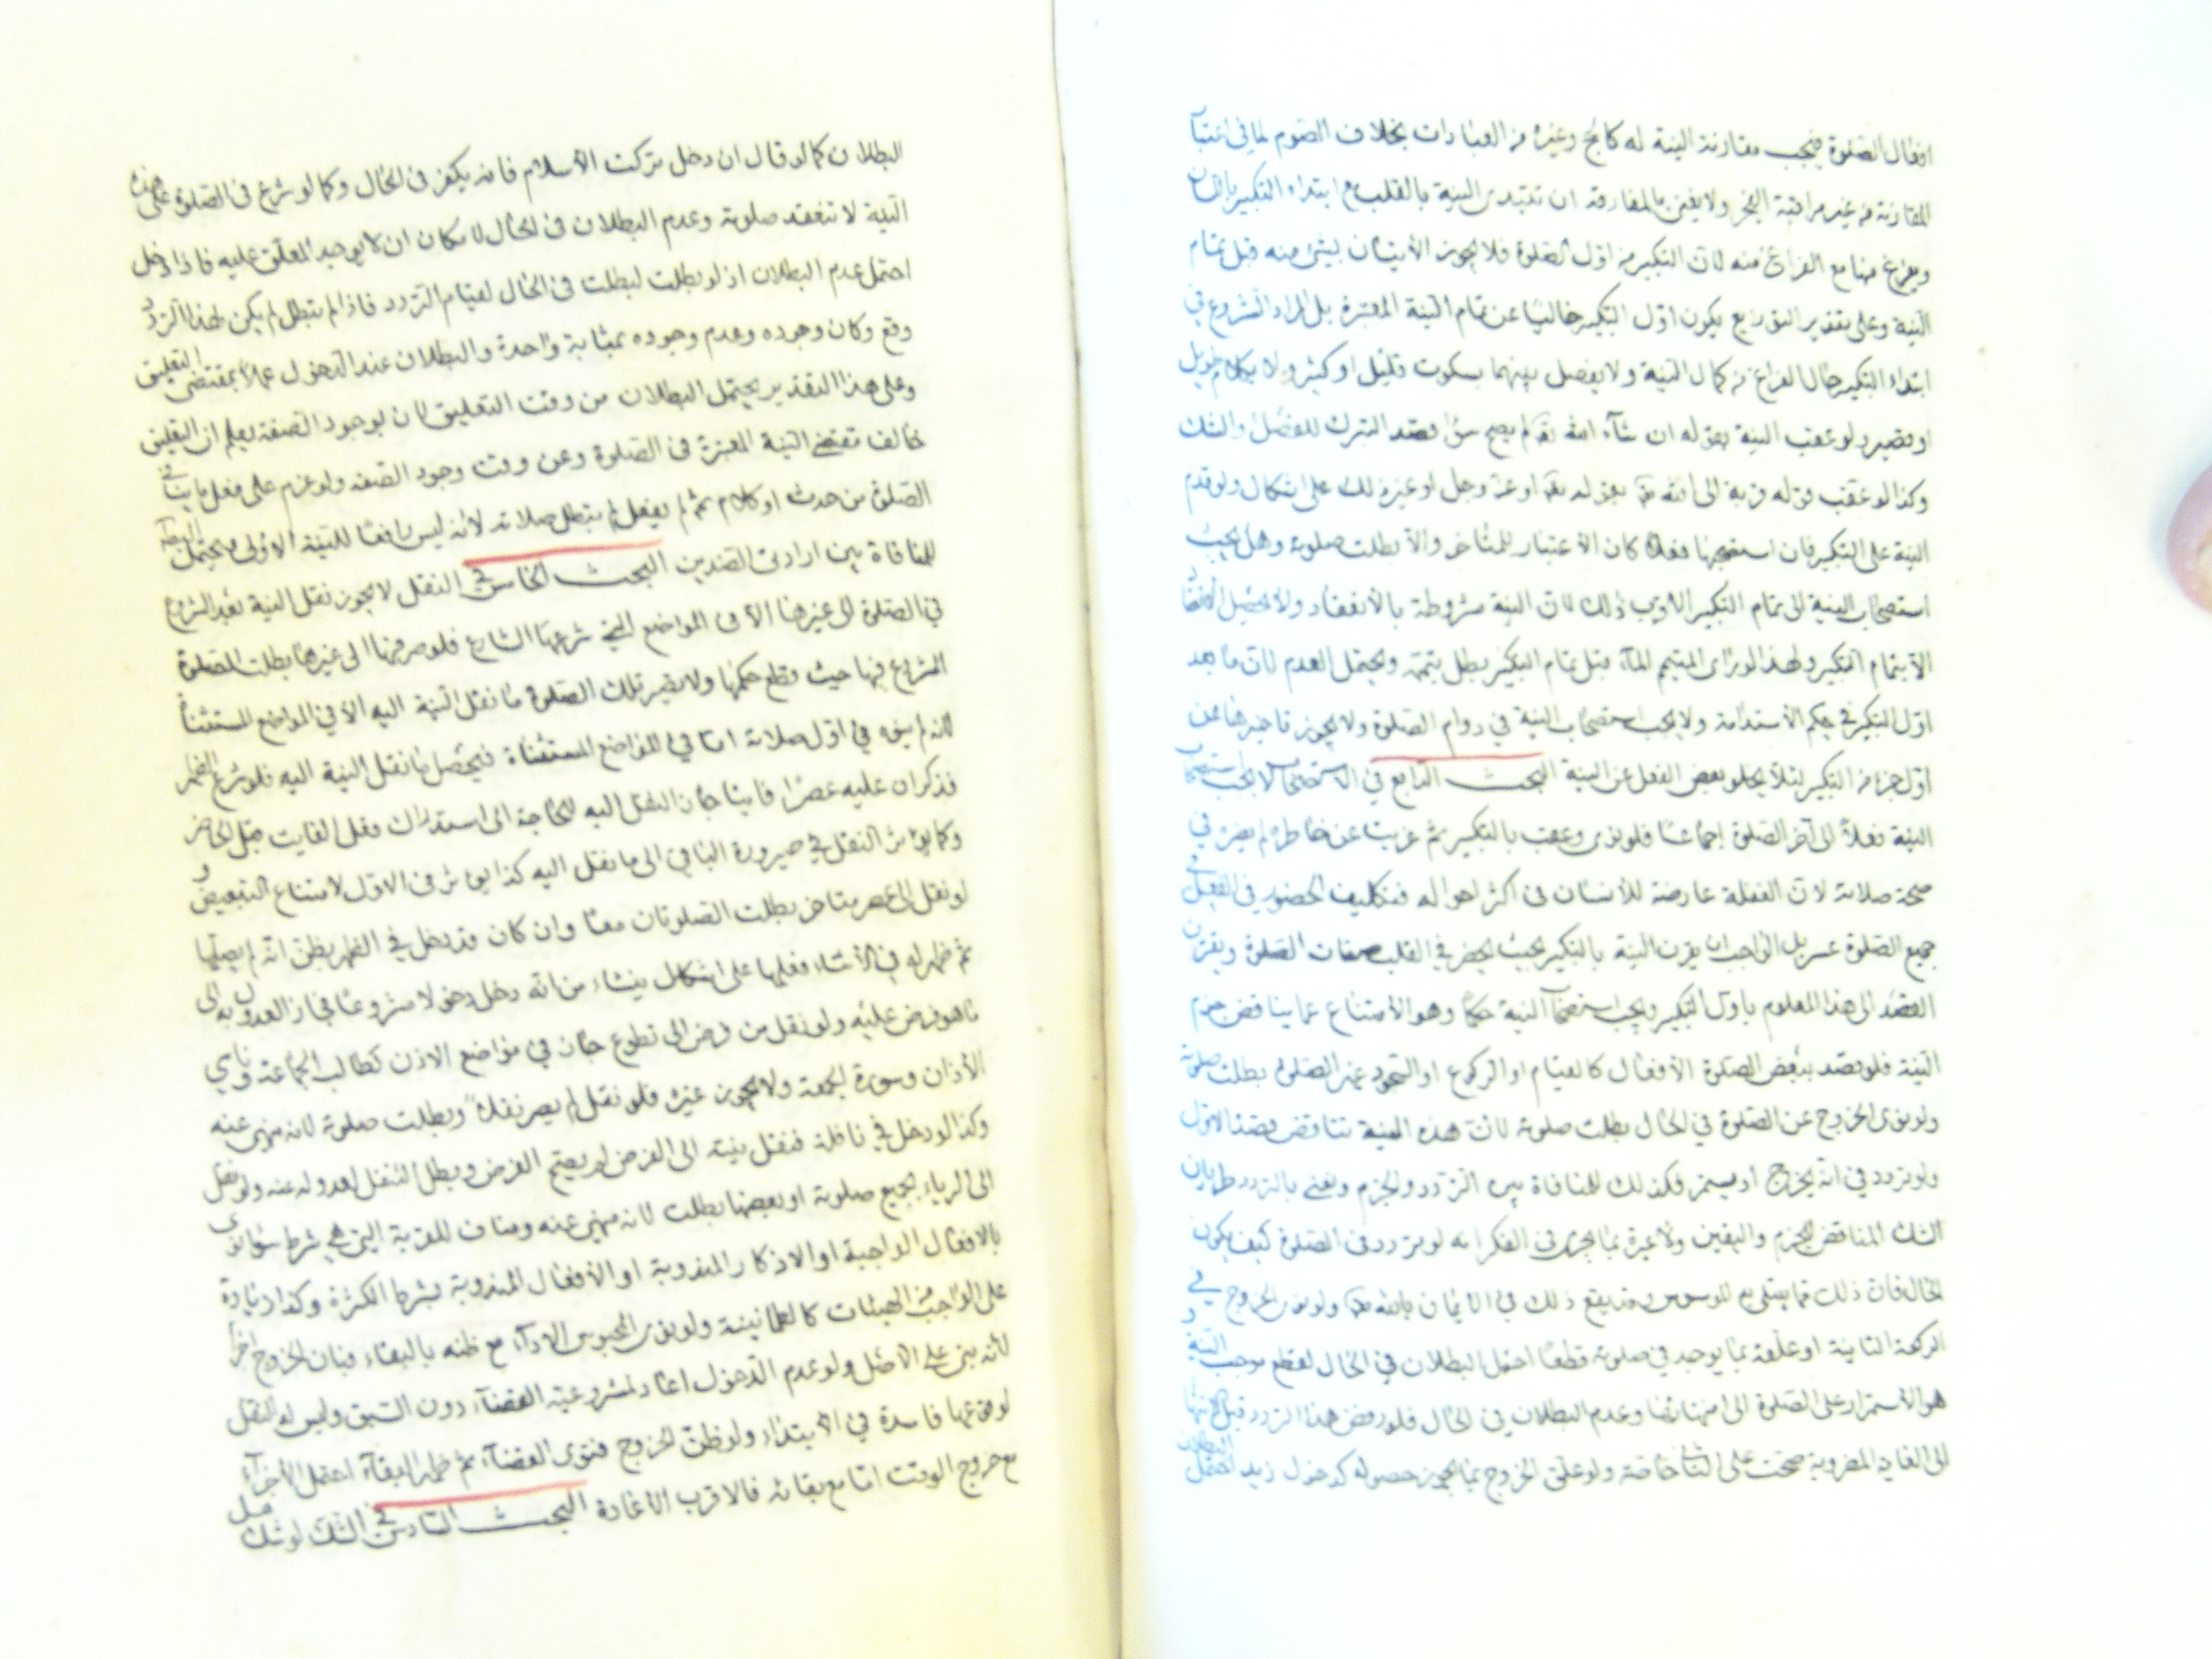 افعال الصلوة فيجب مقارنة النية له كالحج وغيره من العبادات بخلاف الصوم لما في اعتبار
المقارنة من غير مراقبة الفجر ولا يعنى بالمقارنة ان تبتدى النية بالقلب مع ابتداء التكبير باللسان
ويفرغ منها مع الفراغ منه لان التكبير من اول الصلوة فلا يجوز الاتيان بشئ منه قبل تمام
النية وعلى تقدير التوزيع يكون اول التكبير خاليا عن تمام النية المعتبرة بل المراد الشروع في
ابتداء التكبير حال الفراغ من كمال النية ولا يفصل بينهما بسكوت قليل او كثير ولا بكلام طويل
او قصير ولو عقب النية بقوله ان شاء الله تعالى لم يصح سواء قصد التبرك للفصل او الشك
وكذا لو عقب قوله قربة الى الله بقوله تعالى او عز وجل او غير ذلك على اشكال ولو قدم
النية على التكبير فان استصحبها فعلا كان الاعتبار للمتأخر والا بطلت صلوته وهل يجب
استصحاب النية الى تمام التكبير الاقرب ذلك لان النية مشروطة بالانعقاد ولا يحصل الانعقاد
الا بتمام التكبير ولهذا لو رأى المتيمم الماء قبل تمام التكبير بطل تيممه ويحتمل العدم لان ما بعد
اول التكبير في حكم الاستدامة ولا يجب استصحاب النية في دوام الصلوة ولا يجوز تأخيرها عن
اول جزء من التكبير لئلا يخلو بعض الفعل عن النية البحث الرابع في الاستصحاب لا يجب استصحاب
النية فعلا الى آخر الصلوة اجماعا فلو نوى وعقب بالتكبير ثم عزبت عن خاطره لم يضره في
صحة صلاته لان الغفلة عارضة للانسان في اكثر احواله فتكليف الحضور في الفعل في
جميع الصلوة عسر بل الواجب ان يقرن النية بالتكبير بحيث يحضر في القلب صفات الصلوة ويقرن
القصد الى هذا المعلوم باول التكبير ويجب استصحاب النية حكما وهو الامتناع عما يناقض جزم
النية فلو قصد ببعض الصلوة الافعال كالقيام او الركوع او السجود غير الصلوة بطلت صلوته
ولو نوى الخروج عن الصلوة في الحال بطلت صلوته لان هذه النية تناقض قصد الاول
ولو تردد في انه يخرج او يستمر فكذلك للمنافاة بين التردد والجزم ونعني بالتردد طريان
الشك المناقض للجزم واليقين ولا عبرة بما يجرى في الفكر انه لو تردد في الصلوة كيف يكون
الحال فان ذلك مما يبتلى به الموسوس وقد يقع ذلك في الايمان بالله تعالى ولو نوى الخروج في
الركعة الثانية او علقه بما يوجد في صلوته قطعا احتمل البطلان في الحال لقطع موجب النية و
هو الاستمرار على الصلوة الى انتهائها وعدم البطلان في الحال فلو رفض هذا التردد قبل الانتهاء
الى الغاية المضروبة صحت على الثاني خاصة ولو علق الخروج بما يجوز حصوله كدخول زيد احتمل البطلان
البطلان كما لو قال ان دخل تركت الاسلام فانه يكفر في الحال وكما لو شرع في الصلوة على هذه
النية لا تنعقد صلوته وعدم البطلان في الحال لامكان ان لا يوجد المعلق عليه فاذا دخل
احتمل عدم البطلان اذ لو بطلت لبطلت في الحال لقيام التردد فاذا لم تبطل لم يكن لهذا التردد
وقع وكان وجوده وعدم وجوده بمثابة واحدة والبطلان عند الدخول عملا بمقتضى التعليق
وعلى هذا التقدير يحتمل البطلان من وقت التعليق لان بوجود الصفة يعلم ان التعليق
خالف مقتضى النية المعتبرة في الصلوة وعن وقت وجود الصفة ولو عزم على فعل ما ينافي
الصلوة من حدث او كلام ثم لم يفعل لم تبطل صلاته لانه ليس رافعا للنية الاولى ويحتمل البطلان
للمنافاة بين ارادتى الضدين البحث الخامس في النقل لا يجوز نقل النية بعد الشروع
في الصلوة الى غيرها الا في المواضع التي شرعها الشارع فلو صرفها الى غيرها بطلت الصلوة
المشروع فيها حيث قطع حكمها ولا يصير تلك الصلوة ما نقل النية اليه الا في المواضع المستثناة
لانه لم ينوه في اول صلاته اما في المواضع المستثناة فيحصل ما نقل النية اليه فلو شرع في الظهر
فذكر ان عليه عصرا فائتا جاز النقل اليه للحاجة الى استدراك فعل الفايت قبل الحاضر
وكما يؤثر النقل في صيرورة الباقي الى ما نقل اليه كذا يؤثر في الاول لامتناع التبعيض و
لو نقل الى عصر متاخر بطلت الصلوتان معا وان كان قد دخل في الظهر بظن انه لم يصلها
ثم ظهر له في الاثناء فعلها على اشكال ينشاء من انه دخل دخولا مشروعا فجاز العدول به الى
ما هو فرض عليه ولو نقل من فرض الى تطوع جاز في مواضع الاذن كطالب الجماعة وناسي
الاذان وسورة الجمعة ولا يجوز غيره فلو نقل لم يصر نفلا وبطلت صلوته لانه منهى عنه
وكذا لو دخل في نافلة فنقل نيته الى الفرض لم يصح الفرض وبطل النفل لعدوله عنه ولو نقل
الى الرياء بجميع صلوته او بعضها بطلت لانه منهى عنه ومناف للقربة التي هي شرط سواء نوى
بالافعال الواجبة او الاذكار المندوبة او الافعال المندوبة بشرط الكثرة وكذا زيادة
على الواجب من الهيئات كالطمأنينة ولو نوى المحبوس الاداء مع ظنه بالبقاء فبان الخروج اجزأ
لانه بنى على الاصل ولو عدم الدخول اعاد لمشروعية القضاء دون السبق وليس له النقل
لوقوعها فاسدة في الابتداء ولو ظن الخروج فنوى القضاء ثم ظهر البقاء احتمل الاجزاء
مع خروج الوقت اما مع بقائه فالاقرب الاعادة البحث السادس في الشك لو شك هل